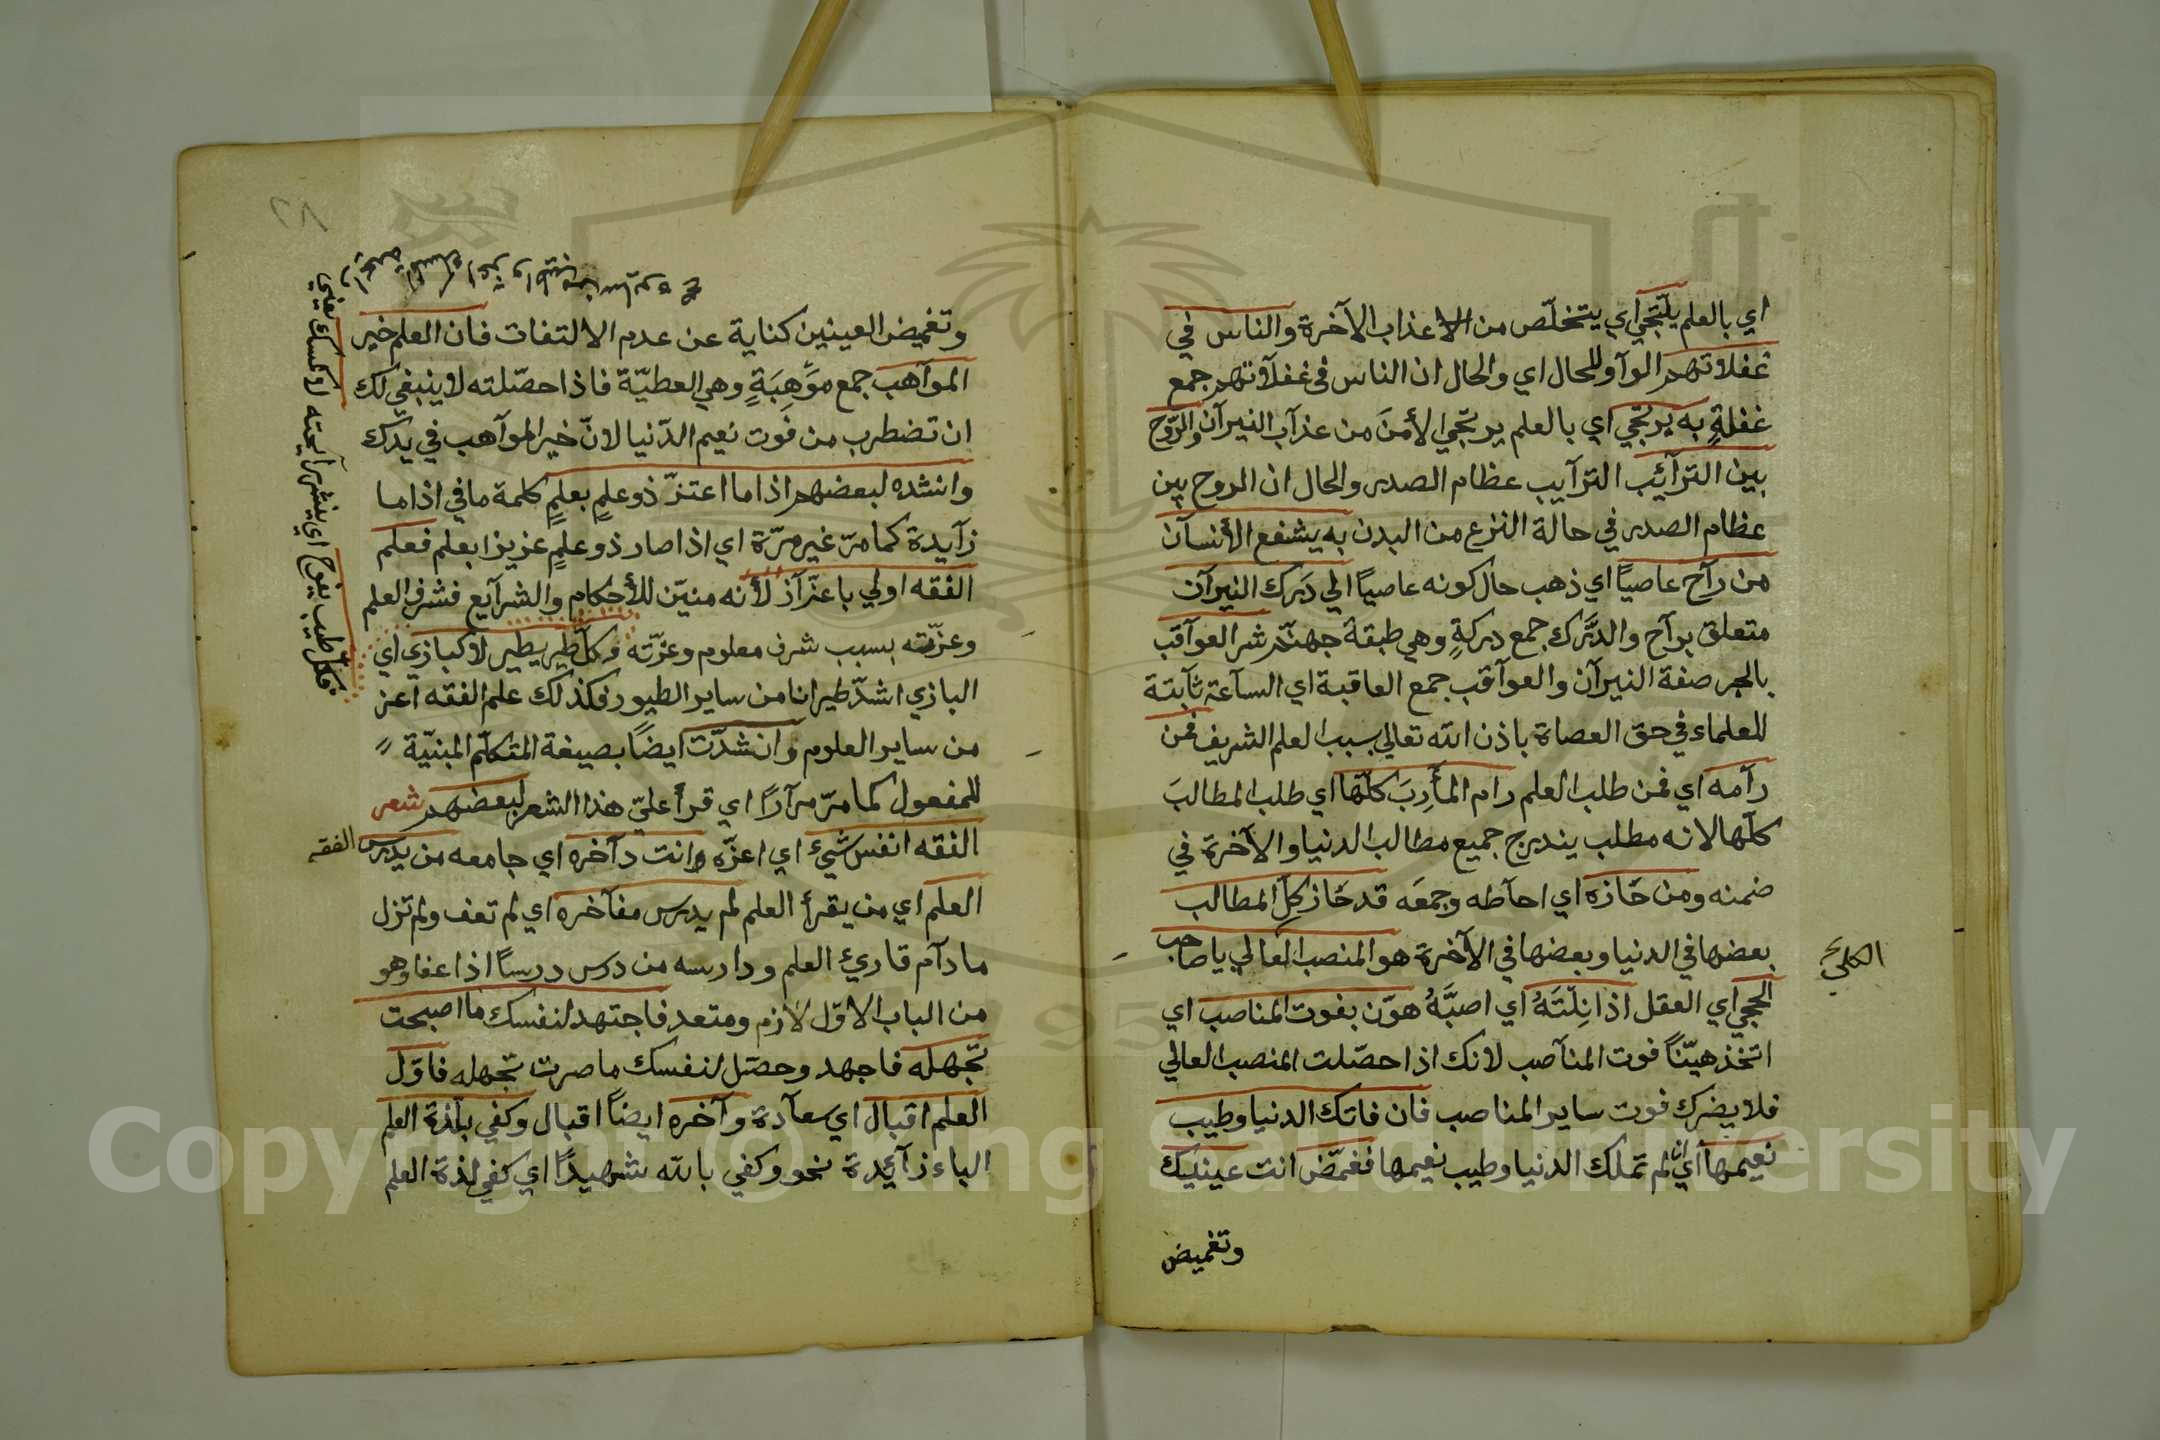 اي بالعلم يلتجي اي يتخلّص من الاعذاب الآخرة والناس في
غفلاتهم الواو للحال اي والحال ان الناس في غفلاتهم جمع
غفلةٍ به يرتجي اي بالعلم يرتجي الأمنَ من عذاب النيرآن والرّوح
بين الترآئب الترآيب عظام الصدر والحال ان الروح بين
عظام الصدر في حالة النزع من البدن به يشفع الأنسآن
من رآح عاصيًا اي ذهب حال كونه عاصيًا الي دَرك النيرآن
متعلق برآح والدَّرك جمع دركةٍ وهي طبقة جهنّم شر العوآقب
بالجر صفة النيرآن والعوآقب جمع العاقبة اي السآعة ثآبتة
للعلماء في حق العصاة باذن الله تعالي بسبب العلم الشريف فمن
رآمه اي فمن طلب العلم رام المأرِبَ كلّها اي طلب المطالبَ
كلّها لانه مطلب يندرج جميع مطالب الدنيا والآخرة في
ضمنه ومن حَازه اي احآطه وجمعَه قد حَاز كلِ المطالب
بعضها في الدنيا وبعضها في الآخرة هو المنصب العالي ياصاحب
الحجي اي العقل اذا نِلْتَهُ اي اصبَّهُ هوّن بفوت المناصب اي
اتخذ هيّنًا فوت المنآصب لانك اذا حصّلت المنصب العالي
فلا يضرك فوت ساير المناصب فان فاتك الدنيا وطيب
نعيمها اي ان لم تملك الدنيا وطيب نعيمها فغمّض انت عينيك
وتغميض
الكلي
٨٢
وتغميض العينين كناية عن عدم الالتفات فان العلم خير
المواهب جمع موْهِبَةٍ وهي العطيّة فاذا حصّلته لا ينبغي لك
ان تضطرب من فوت نعيم الدّنيا لانّ خير المواهب في يدك
وانشده لبعضهم اذا ما اعتزّ ذو علمٍ بعلمٍ كلمة ما في اذا ما
زآيدة كما مرّ غير مرّة اي اذا صار ذو علمٍ عزيزا بعلم فعلم
الفقه اولي باعتزآز لأنه مبيّن للأحكام والشرآيع فشرف العلم
وعزّته بسبب شرف معلوم وعزّته وكلّ طير يطير لا كبازي اي
البازي اشدّ طيرانا من ساير الطيور فكذلك علم الفقه اعز
من ساير العلوم وانشدّت ايضًا بصيغة المتكلّم المبنيّة
للمفعول كما مرّ مرآرًا اي قرأ عليّ هذا الشعر لبعضهم شعر
الفقه انفس شيءٍ اي اعزّه وانت دآخره اي جامعه من يدرس
الفقه
العلم اي من يقرأ العلم لم يدرس مفآخره اي لم تعف ولم تزل
ما دآم قاريء العلم ودارسه من درس درسًا اذا عفا وهو
من الباب الاوّل لازم ومتعد فاجتهد لنفسك ما اصبحت
تجهله فاجهد وحصّل لنفسك ما صرت تجهله فاوّل
العلم اقبال اي سعآدة وآخره ايضًا اقبال وكفي بلذة العلم
الباء زآئيدة نحو وكفي بالله شهيدًا اي كفي لذة العلم
فكل طيب يفوح اي ينشر رآيحته لا كمسك يعني
Copyright © King Saud University
1957